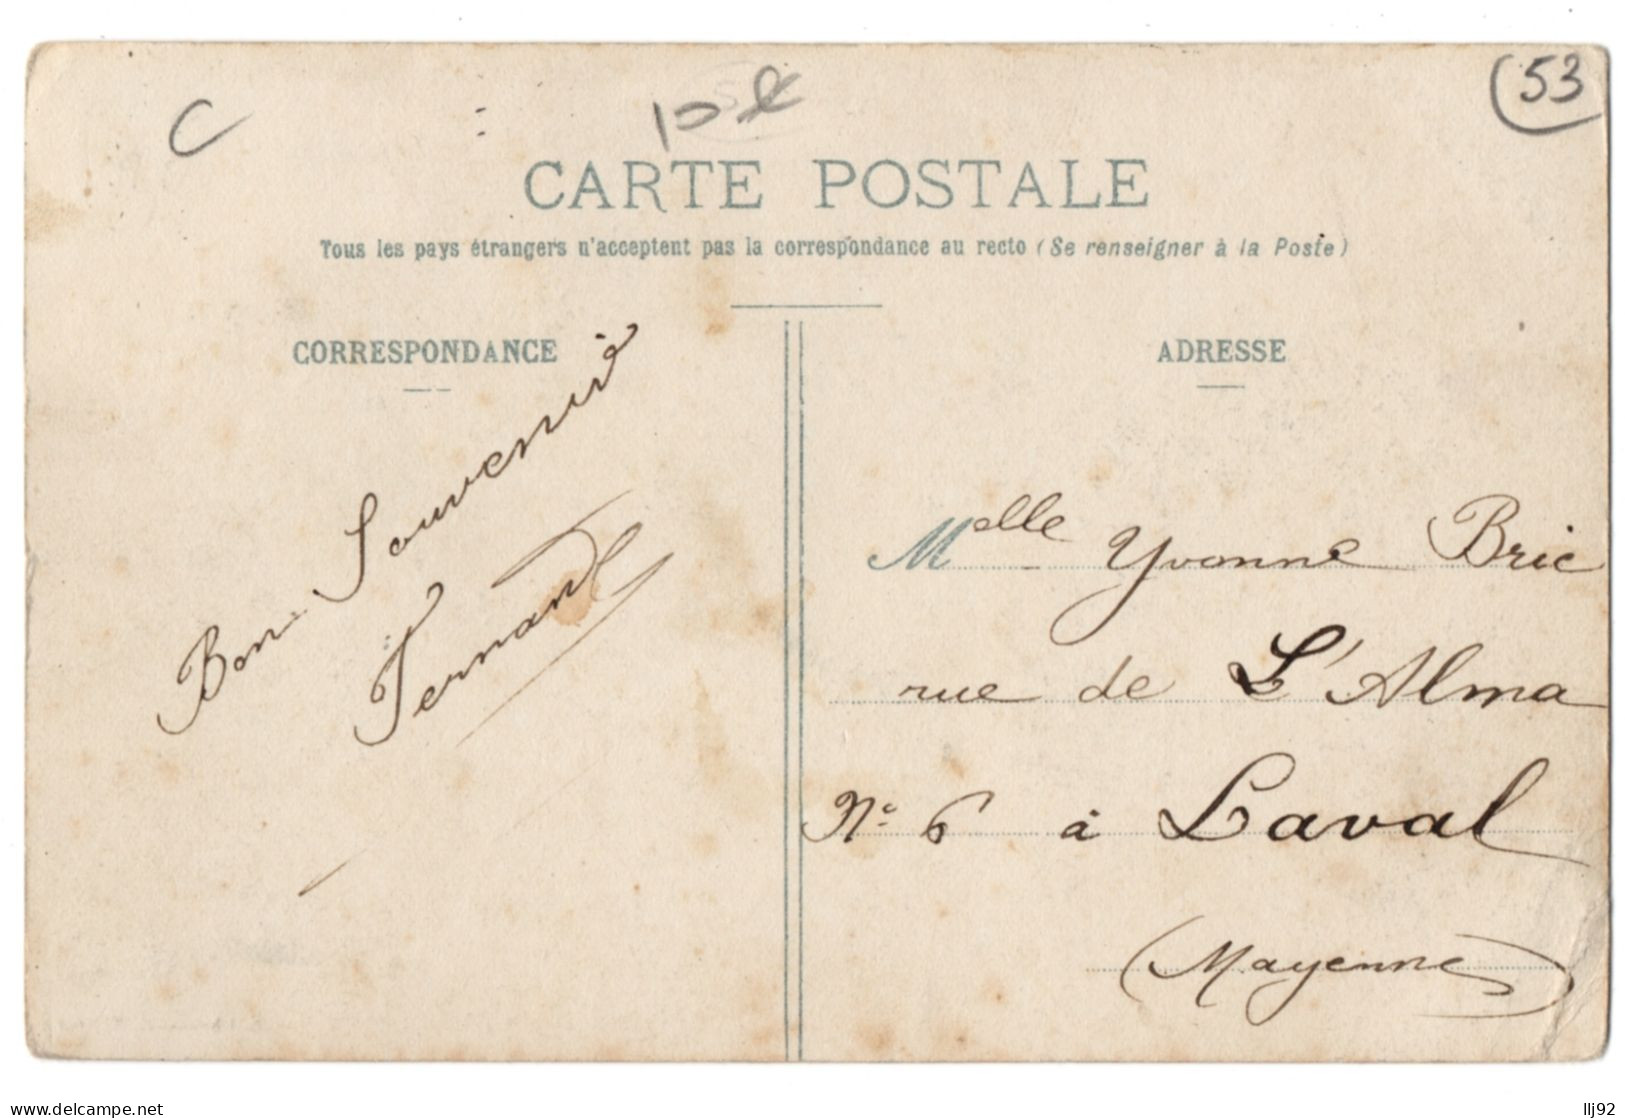 C
53
CARTE POSTALE
Tous les pays étrangers n'acceptent pas la correspondance au recto (Se renseigner à la Poste)
CORRESPONDANCE
Bon Souvenir
Fernand
ADRESSE
Melle Yvonne Bric
rue de L'Alma
N° 6 à Laval
(Mayenne)
delcampe.net
llj92